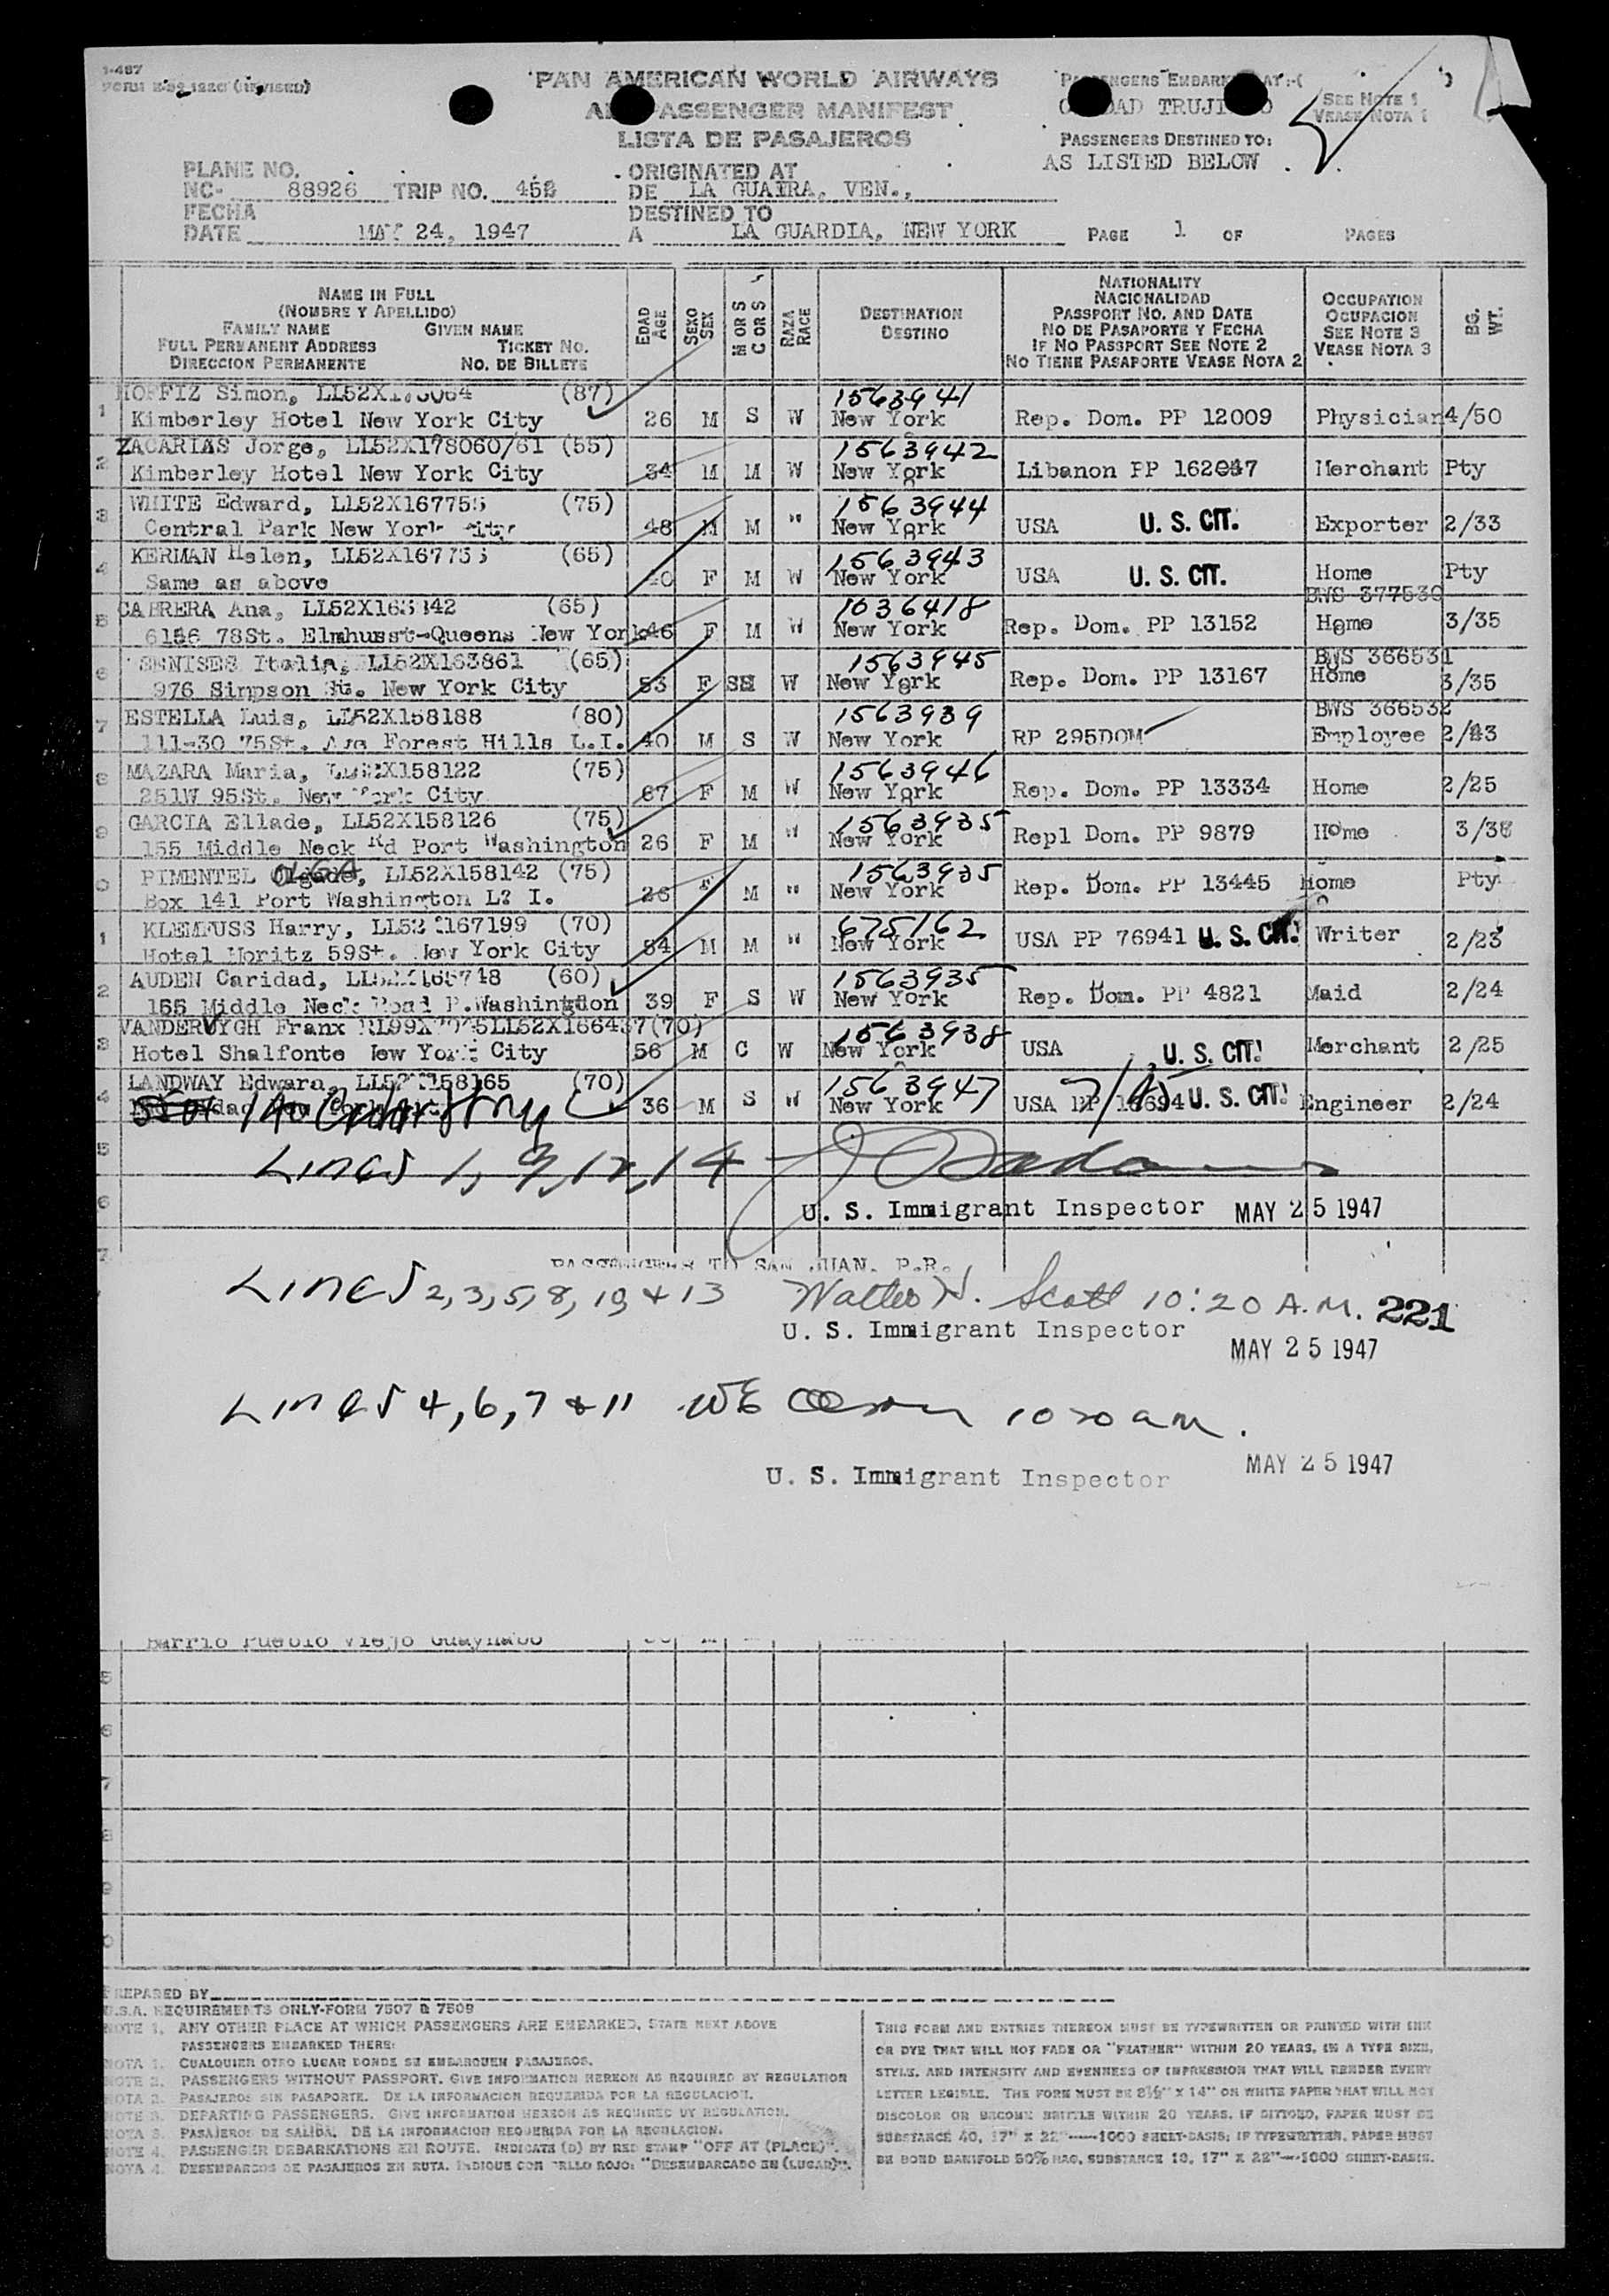 1-467
PAN AMERICAN WORLD AIRWAYS
PASSENGER MANIFEST
LISTA DE PASAJEROS
SEE NOTE 1
VEASE NOTA 1
PASSENGERS DESTINED TO:
AS LISTED BELOW
PLANE NO.
NC- 88926 TRIP NO. 458
ORIGINATED AT
DE LA GUAIRA, VEN.,
FECHA
DATE MAY 24, 1947
DESTINED TO
A LA GUARDIA, NEW YORK
PAGE 1 OF PAGES
NAME IN FULL
(NOMBRE Y APELLIDO)
FAMILY NAME GIVEN NAME
FULL PERMANENT ADDRESS TICKET NO.
DIRECCION PERMANENTE NO. DE BILLETE
EDAD
AGE
SEXO
SEX
M OR S
C OR S
RAZA
RACE
DESTINATION
DESTINO
NATIONALITY
NACIONALIDAD
PASSPORT NO. AND DATE
NO DE PASAPORTE Y FECHA
IF NO PASSPORT SEE NOTE 2
NO TIENE PASAPORTE VEASE NOTA 2
OCCUPATION
OCUPACION
SEE NOTE 3
VEASE NOTA 3
BG.
WT.
Simon, (87) 1563941
1 Kimberley Hotel New York City 26 M S W New York Rep. Dom. PP 12009 Physician 4/50
ZACARIAS Jorge, LL52X178060/61 (55) 1563942
2 Kimberley Hotel New York City 34 M M W New York Libanon PP Merchant Pty
WHITE Edward, LL52X167755 (75) 1563944
3 Central Park New York City 48 M M W New York USA U. S. CIT. Exporter 2/33
KERMAN Helen, (65) 1563943
4 Same as above F M W New York USA U. S. CIT. Home Pty
BWS 377530
CABRERA Ana, (65) 1036418
5 78St. Elmhusst-Queens New York 46 F M W New York Rep. Dom. PP 13152 Home 3/35
BWS 366531
Italia, LL52X163861 (65) 1563945
6 976 Simpson St. New York City 53 F W New York Rep. Dom. PP 13167 Home 3/35
BWS 366532
ESTELLA Luis, LL52X158188 (80) 1563939
7 111-30 75St. Ave Forest Hills L.I. 40 M S W New York RP 295DOM Employee 2/43
MAZARA Maria, LL52X158122 (75) 1563946
8 251W 95St. New York City 67 F M W New York Rep. Dom. PP 13334 Home 2/25
GARCIA Ellade, LL52X158126 (75) 1563935
9 155 Middle Neck Rd Port Washington 26 F M W New York Repl Dom. PP 9879 Home
PIMENTEL OLGA, LL52X158142 (75) 1563935
0 Box 141 Port Washington L? I. 26 F M W New York Rep. Dom. PP 13445 Home Pty
KLEMFUSS Harry, LL52X167199 (70) 675162
1 Hotel Moritz 59St. New York City 54 M M W New York USA PP 76941 U. S. CIT. Writer 2/23
AUDEN Caridad, (60) 1563935
2 155 Middle Neck Road P.Washington 39 F S W New York Rep. Dom. PP 4821 Maid 2/24
Franx LL52X166437(70) 1563938
3 Hotel Shalfonte New York City 56 M C W New York USA U. S. CIT! Merchant 2/25
LANDWAY Edward, LL52X158165 (70) 1563947
4 140 36 M S W New York USA U. S. CIT! Engineer 2/24
5 Lines 1, 9, 12, 14
6 U. S. Immigrant Inspector MAY 25 1947
7
PASSENGERS TO SAN JUAN, P.R.
Lines 2, 3, 5, 8, 10 & 13 Walter H. Scott 10:20 A.M. 221
U. S. Immigrant Inspector
MAY 25 1947
Lines 4, 6, 7 & 11 WE Olson 10 20 am.
U. S. Immigrant Inspector MAY 25 1947
Barrio Pueblo Viejo Guaynabo
5
6
7
8
9
0
PREPARED BY
U.S.A. REQUIREMENTS ONLY-FORM 7507 & 7509
NOTE 1. ANY OTHER PLACE AT WHICH PASSENGERS ARE EMBARKED, STATE NEXT ABOVE
PASSENGERS EMBARKED THERE:
NOTA 1. CUALQUIER OTRO LUGAR DONDE SE EMBARQUEN PASAJEROS.
NOTE 2. PASSENGERS WITHOUT PASSPORT. GIVE INFORMATION HEREON AS REQUIRED BY REGULATION
NOTA 2. PASAJEROS SIN PASAPORTE. DE LA INFORMACION REQUERIDA POR LA REGULACION.
NOTE 3. DEPARTING PASSENGERS. GIVE INFORMATION HEREON AS REQUIRED BY REGULATION.
NOTA 3. PASAJEROS DE SALIDA. DE LA INFORMACION REQUERIDA POR LA REGULACION.
NOTE 4. PASSENGER DEBARKATIONS EN ROUTE. INDICATE (D) BY RED STAMP "OFF AT (PLACE)".
NOTA 4. DESEMBARCOS DE PASAJEROS EN RUTA. INDIQUE CON SELLO ROJO: "DESEMBARCADO EN (LUGAR)".
THIS FORM AND ENTRIES THEREON MUST BE TYPEWRITTEN OR PRINTED WITH INK
OR DYE THAT WILL NOT FADE OR "FEATHER" WITHIN 20 YEARS, IN A TYPE SIZE,
STYLE, AND INTENSITY AND EVENNESS OF IMPRESSION THAT WILL RENDER EVERY
LETTER LEGIBLE. THE FORM MUST BE 8½" X 14" ON WHITE PAPER THAT WILL NOT
DISCOLOR OR BECOME BRITTLE WITHIN 20 YEARS. IF DITTOED, PAPER MUST BE
SUBSTANCE 40, 17" X 22"——1000 SHEET-BASIS; IF TYPEWRITTEN, PAPER MUST
BE BOND MANIFOLD 50% RAG, SUBSTANCE 18, 17" X 22"—1000 SHEET-BASIS.